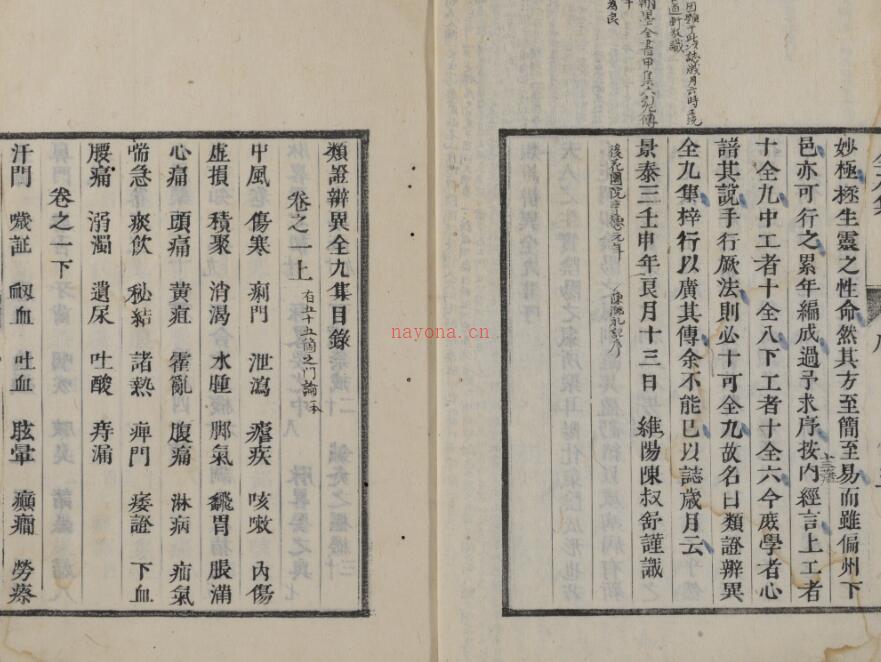 妙極極生靈之性命然其方至簡至易而雖偏州下
邑亦可行之累年編成過予求序按內經言上工者
十全九中工者十全八下工者十全六今庶學者心
諳其說手行厥法則必十可全九故名曰類證辨異
全九集梓行以廣其傳余不能已以誌歲月云
景泰三壬申年良月十三日 維陽陳叔舒謹識
類證辨異全九集目錄
卷之一上
右五十五箇之門論一本
中風 傷寒 痢門 泄瀉 瘧疾 咳嗽 內傷
虛損 積聚 消渴 水腫 脚氣 飜胃 脹滿
心痛 頭痛 黃疸 霍亂 腹痛 淋病 疝氣
喘急 痰飲 秘結 諸熱 痺門 痿證 下血
腰痛 溺濁 遺尿 吐酸 痔漏
卷之一下
汗門 嘔証 衂血 吐血 眩暈 癲癇 勞瘵
nayona.cn